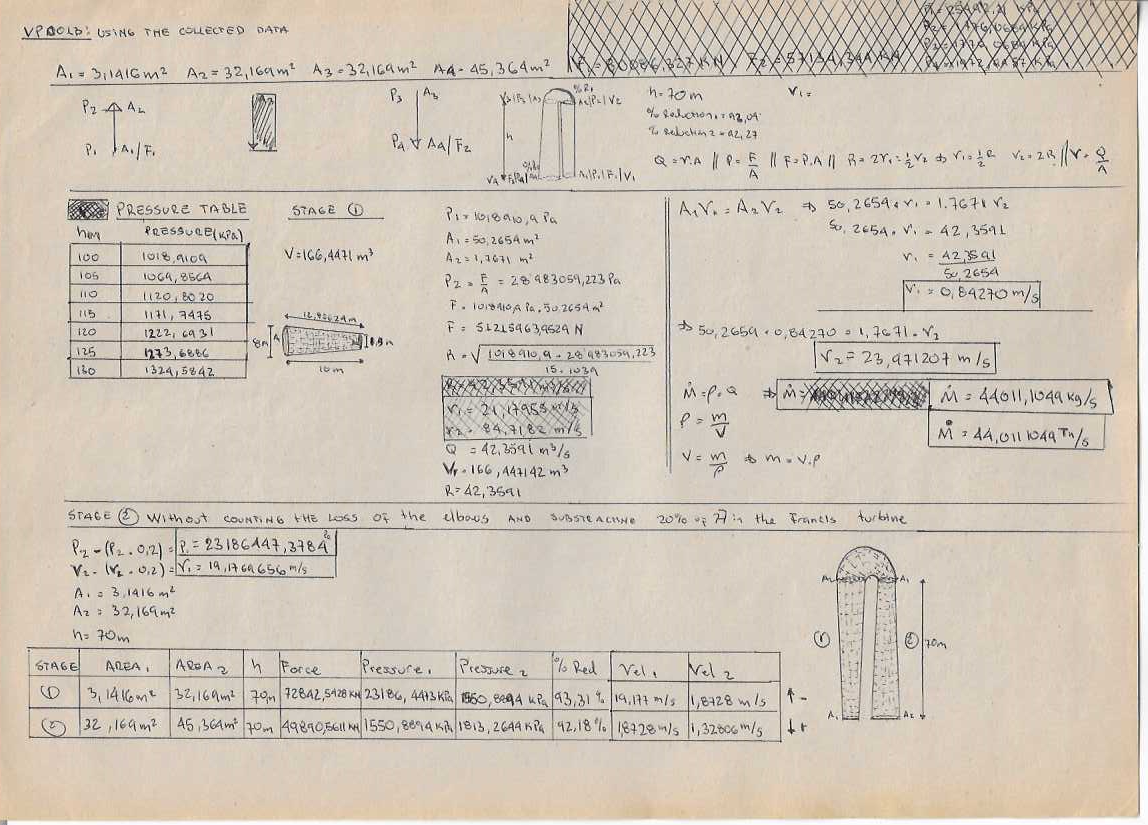 VPOO13: USING THE COLLECTED DATA
A1 = 3,1416m² A2 = 32,169m² A3 = 32,169m² A4 = 45,364m²
P2 A2
P1 A1/F1
P3 A3
P4 A4/F2
h
h = 70m
V1 =
% Reduction 1 = 92,09
% Reduction 2 = 92,27
Q = V.A // P = F/A // F = P.A // R = 2V1 = ½V2 ⇒ V1 = ½R V2 = 2R // V = Q/A
PRESSURE TABLE
h(m) PRESSURE(KPa)
100 1018,9109
105 1069,8564
110 1120,8020
115 1171,7475
120 1222,6931
125 1273,6886
130 1324,5842
STAGE ①
V = 166,4471 m³
8m
10m
P1 = 1018910,9 Pa
A1 = 50,2654m²
A2 = 1,7671 m²
P2 = F/A = 28983059,223 Pa
F = 1018910,9 Pa . 50,2654 m²
F = 51215963,9529 N
R = √1018910,9 - 28983059,223
15,1039
V1 = 21,17955 m/s
V2 = 84,7182 m/s
Q = 42,3591 m³/s
VT = 166,447142 m³
R = 42,3591
A1V1 = A2V2 ⇒ 50,2654 . V1 = 1,7671 V2
50,2654 . V1 = 42,3591
V1 = 42,3591
50,2654
V1 = 0,84270 m/s
⇒ 50,2654 . 0,84270 = 1,7671 . V2
V2 = 23,971207 m/s
Ṁ = ρ . Q ⇒ Ṁ = Ṁ = 44011,1049 kg/s
Ṁ = 44,011049 Tn/s
ρ = m/V
V = m/ρ ⇒ m = V.ρ
STAGE ② Without COUNTING THE LOSS OF the elbows AND SUBSTRACTING 20% of in the Francis turbine
P2 - (P2 . 0,2) = P1 = 23186447,3784 Pa
V2 - (V2 . 0,2) = V1 = 19,1769656 m/s
A1 = 3,1416 m²
A2 = 32,169 m²
h = 70m
STAGE AREA1 AREA2 h Force Pressure1 Pressure2 % Red Vel1 Vel2
① 3,1416m² 32,169m² 70m 72842,5428 KN 23186,4473 KPa 1550,8894 KPa 93,31 % 19,177 m/s 1,8728 m/s ↑ -
② 32,169m² 45,364m² 70m 49890,5611 KN 1550,8894 KPa 1813,2644 KPa 92,18 % 1,8728 m/s 1,32806 m/s ↓ +
A2 A1
① ② 70m
A1 A2